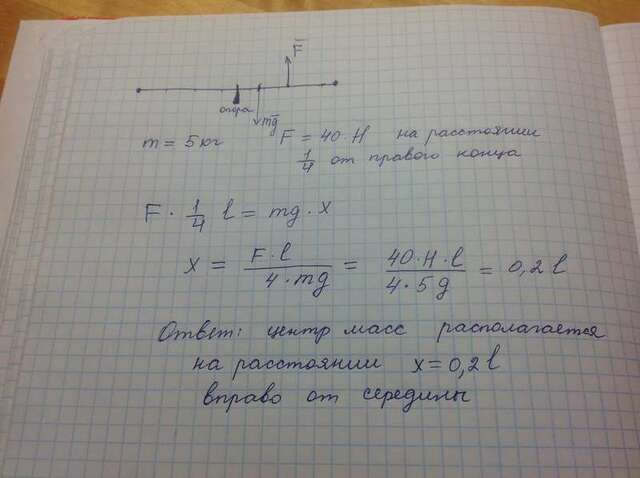 F
опора
mg
m = 5 кг F = 40·H на расстоянии
1/4 от правого конца
F · 1/4 l = mg · x
x = F·l / 4·mg = 40·H·l / 4·5g = 0,2 l
Ответ: центр масс располагается
на расстоянии x = 0,2 l
вправо от середины